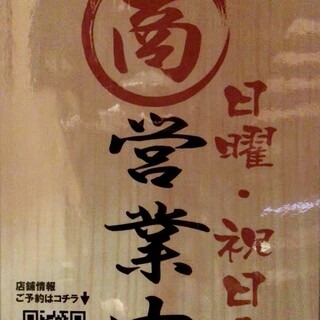 商
日曜・祝日
営業中
店舗情報
ご予約はコチラ↓